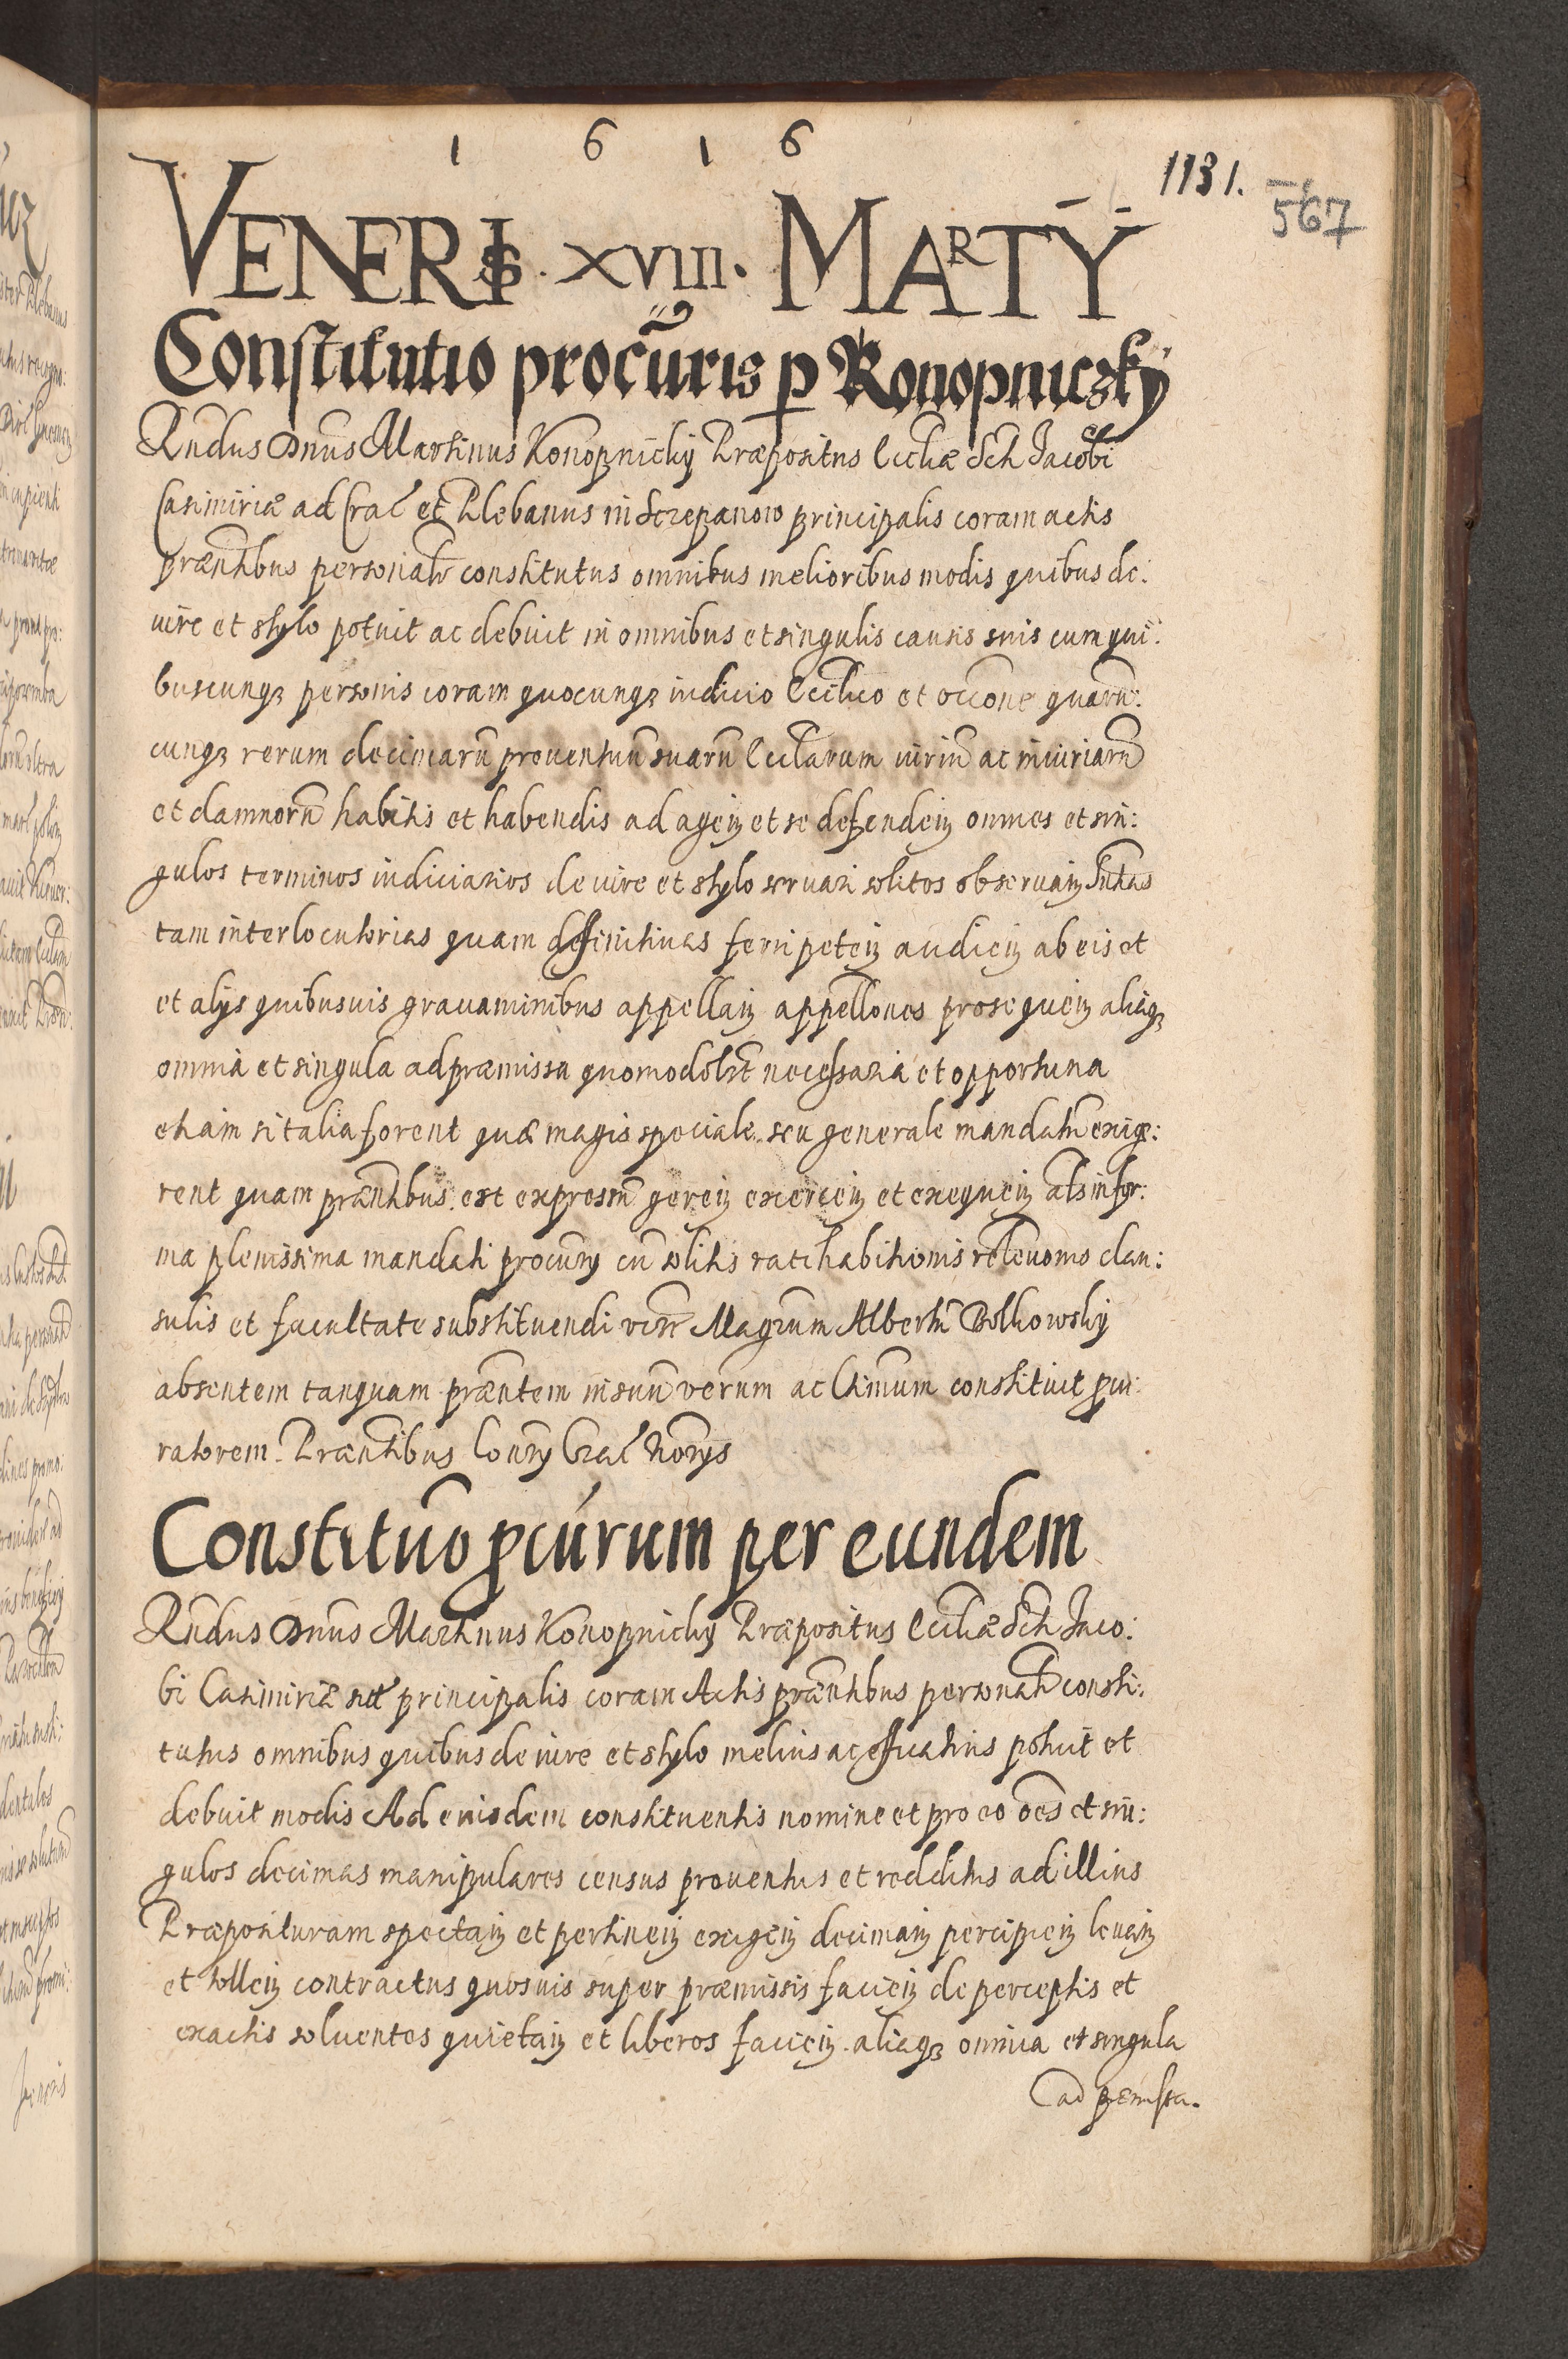 1 6 1 6
1131.
567
VENERIS . XVIII . MARTY
Constitutio procuris p Konopniczky
Rndus Dnus Martinus Konopnicky Præpositus Eccliæ Scti Jacobi
Casimiriæ ad Crac et Plebanus in Sczepanow principalis coram actis
præntibus personalr constitutus omnibus melioribus modis quibus de:
iure et stylo potuit ac debuit in omnibus et singulis causis suis cum qui:
buscunq personis coram quocunq iudicio Ecclico et occone quarū:
cunq rerum decimarū prouentuū suarū Ecclarum iuriū ac iniuriarū
et damnorū habitis et habendis ad agen et se defenden omnes et sin:
gulos terminos iudiciarios de iure et stylo seruari solitos obseruan Sntias
tam interlocutorias quam definitiuas ferri peten audien ab eis et
et alijs quibusuis grauaminibus appellan appellones prosequen aliaq
omnia et singula ad præmissa quomodolbt necessaria et opportuna
etiam si talia forent quæ magis speciale seu generale mandatū exige:
rent quam præntibus est expressū geren exercen et exequen als in for:
ma plenissima mandati procurij cū solitis ratihabitionis releuonis clau:
sulis et facultate substituendi Magrum Albertū Bolkowsky
absentem tanquam præntem in suū verum ac ltimum constituit pcu:
ratorem. Præntibus Crac Norijs
Constituo pcurum per eundem
Rndus Dnus Martinus Konopnicky Præpositus Eccliæ Scti Jaco:
bi Casimiriæ principalis coram Actis præntibus personalr consti:
tutus omnibus quibus de iure et stylo melius ac efficatius potuit et
debuit modis Ad eiusdem constituentis nomine et pro eo oēs et sin:
gulos decimas manipulares census prouentus et redditus ad illius
Præposituram spectan et pertinen exigen decimam percipien leuan
et tollen contractus quosuis super præmissis facien de perceptis et
exactis soluentes quietan et liberos facien aliaq omnia et singula
ad pæmissa.